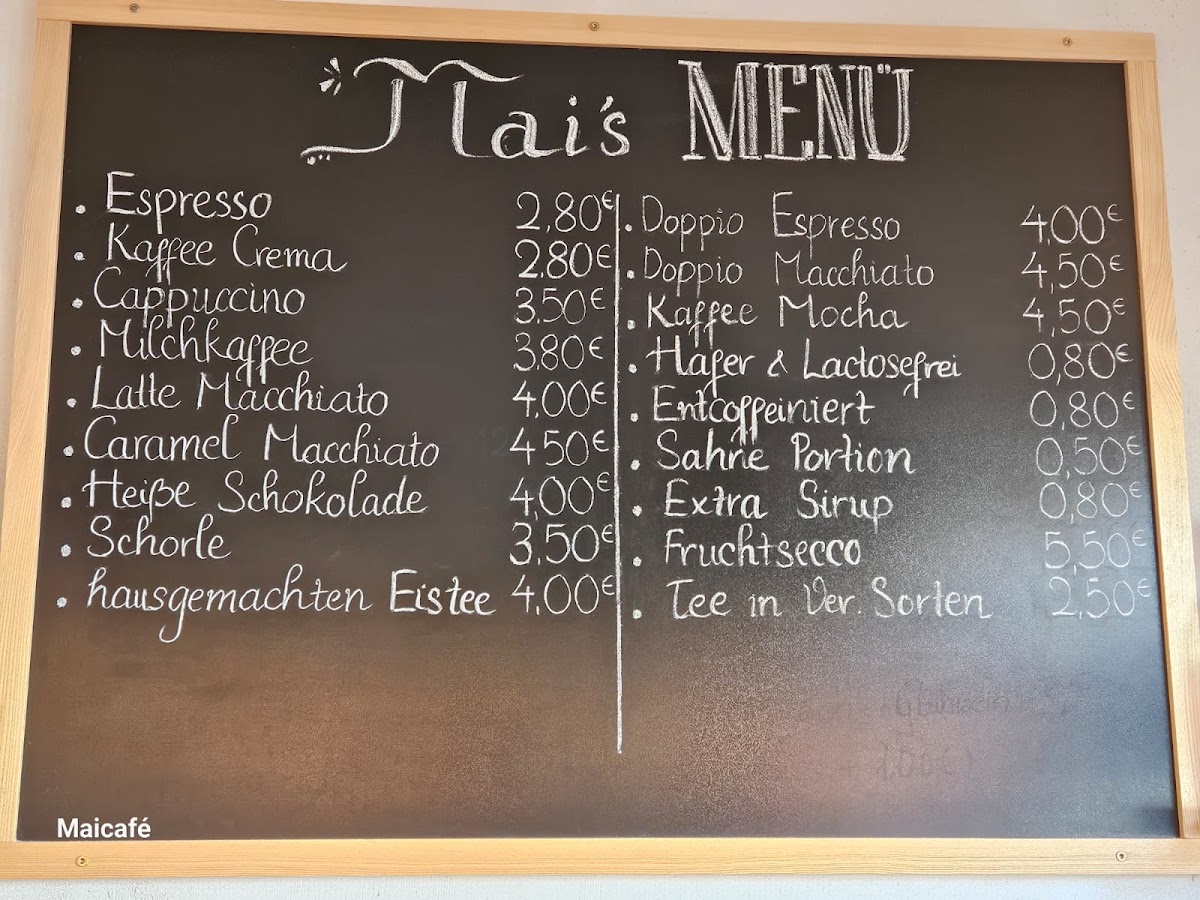 Mai's MENÜ
. Espresso 2,80€
. Kaffee Crema 2,80€
. Cappuccino 3,50€
. Milchkaffee 3,80€
. Latte Macchiato 4,00€
. Caramel Macchiato 4,50€
. Heiße Schokolade 4,00€
. Schorle 3,50€
. hausgemachten Eistee 4,00€
. Doppio Espresso 4,00€
. Doppio Macchiato 4,50€
. Kaffee Mocha 4,50€
. Hafer & Lactosefrei 0,80€
. Entcoffeiniert 0,80€
. Sahne Portion 0,50€
. Extra Sirup 0,80€
. Fruchtsecco 5,50€
. Tee in Ver. Sorten 2,50€
Maicafé